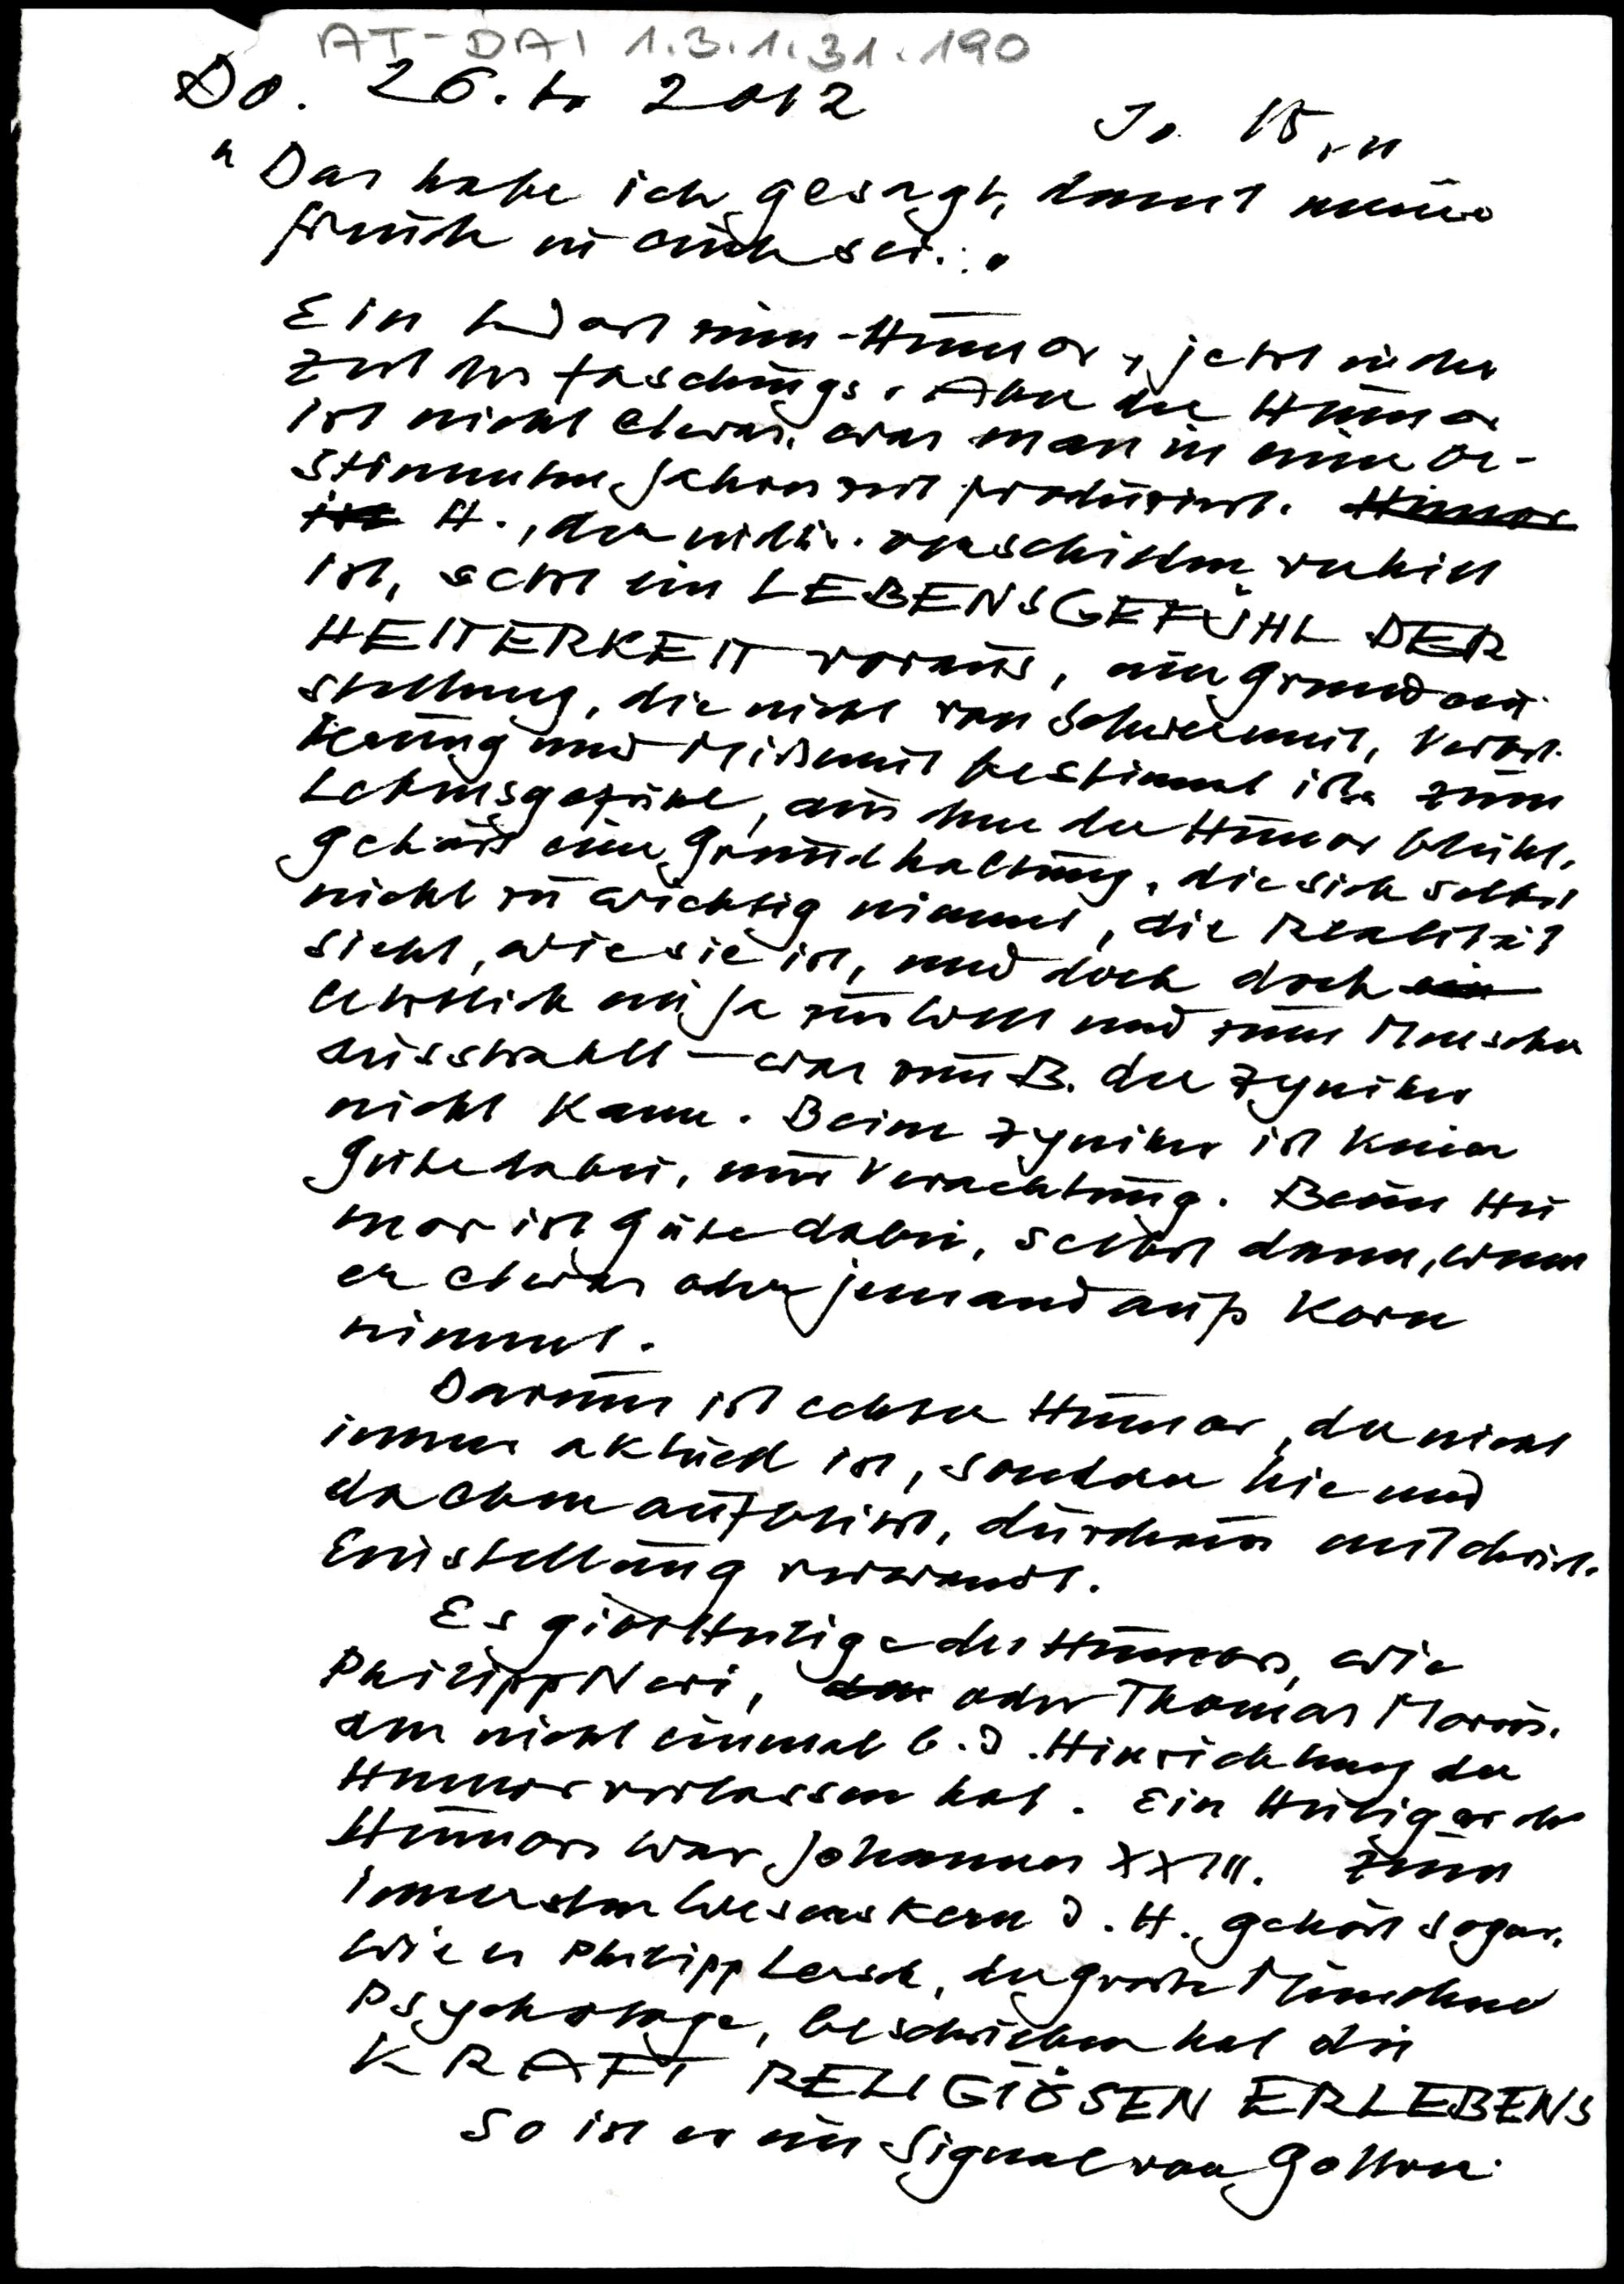 AT-DAI 1.3.1.31.190
Do. 26. 1. 2012
Jo. 15,11
"Das habe ich gesagt, damit meine
Freude in euch sei..."
Ein Wort zum Humor, jetzt in der
Zeit des Faschings. Aber der Humor
ist nicht etwas, was man in einer be-
stimmten Jahreszeit produziert. Humor
ist H., der v. verschieden
ist, setzt ein LEBENSGEFÜHL DER
HEITERKEIT voraus, eine Grundein-
stellung, die nicht von Schwermut, Verbit-
terung und Mißmut bestimmt ist. Zum
Lebensgefühl, aus dem der Humor blüht,
gehört eine Grundhaltung, die sich selbst
nicht zu wichtig nimmt, die Realität
sieht, wie sie ist, und doch doch ein
ein Ja zur Welt und zum Menschen
ausstrahlt – was zum B. der Zyniker
nicht kann. Beim Zyniker ist keine
Güte dabei, nur Verachtung. Beim Hu
mor ist Güte dabei, selbst dann, wenn
er etwas oder jemand aufs Korn
nimmt.
Darum ist echter Humor, der nicht
immer aktuell ist, sondern hie und
da eben aufblitzt, durchaus mit christ.
Einstellung verwandt.
Es gibt Heilige des Humors, wie
Philipp Neri, oder Thomas Morus,
den nicht einmal b. d. Hinrichtung der
Humor verlassen hat. Ein Heiliger des
Humors war Johannes XXIII. Zum
innersten Wesenskern d. H. gehört sogar,
wie es Philipp Lersch, der große Münchner
Psychologe, beschrieben hat die
KRAFT RELIGIÖSEN ERLEBENS
So ist er ein Signal von Gotten.